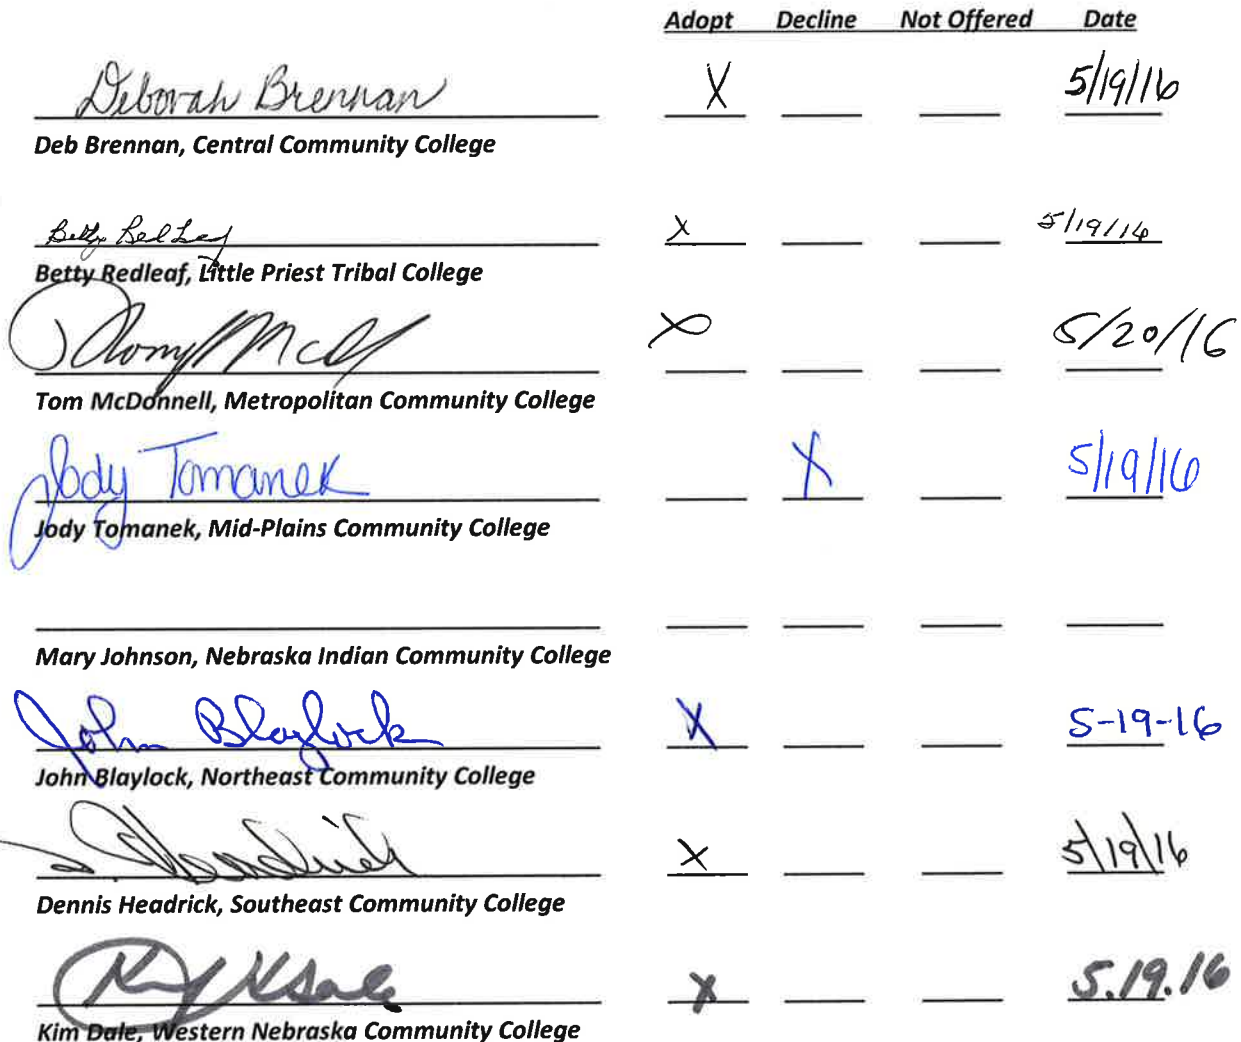 Adopt Decline Not Offered Date
Deborah Brennan X 5/19/16
Deb Brennan, Central Community College
Betty Redleaf x 5/19/16
Betty Redleaf, Little Priest Tribal College
X 5/20/16
Tom McDonnell, Metropolitan Community College
Jody Tomanek X 5/19/16
Jody Tomanek, Mid-Plains Community College
Mary Johnson, Nebraska Indian Community College
John Blaylock X 5-19-16
John Blaylock, Northeast Community College
X 5/19/16
Dennis Headrick, Southeast Community College
X 5.19.16
Kim Dale, Western Nebraska Community College